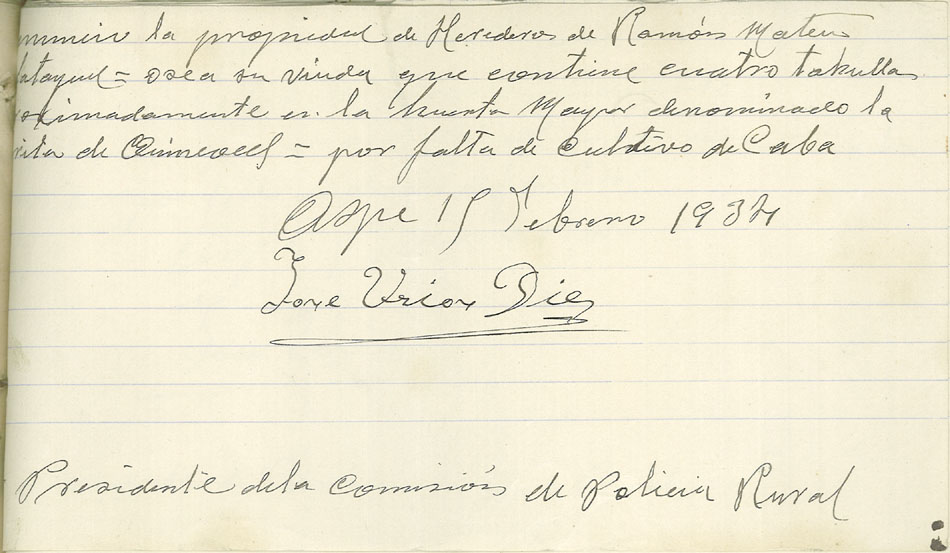 la propiedad de Herederos de Ramón Mateu
= osea su viuda que contiene cuatro tahullas
oximadamente en la huerta Mayor denominado la
de = por falta de cultivo de Caba
Aspe 15 Febrero 1934
Jose Urios Diez
Presidente dela Comisión de Policia Rural